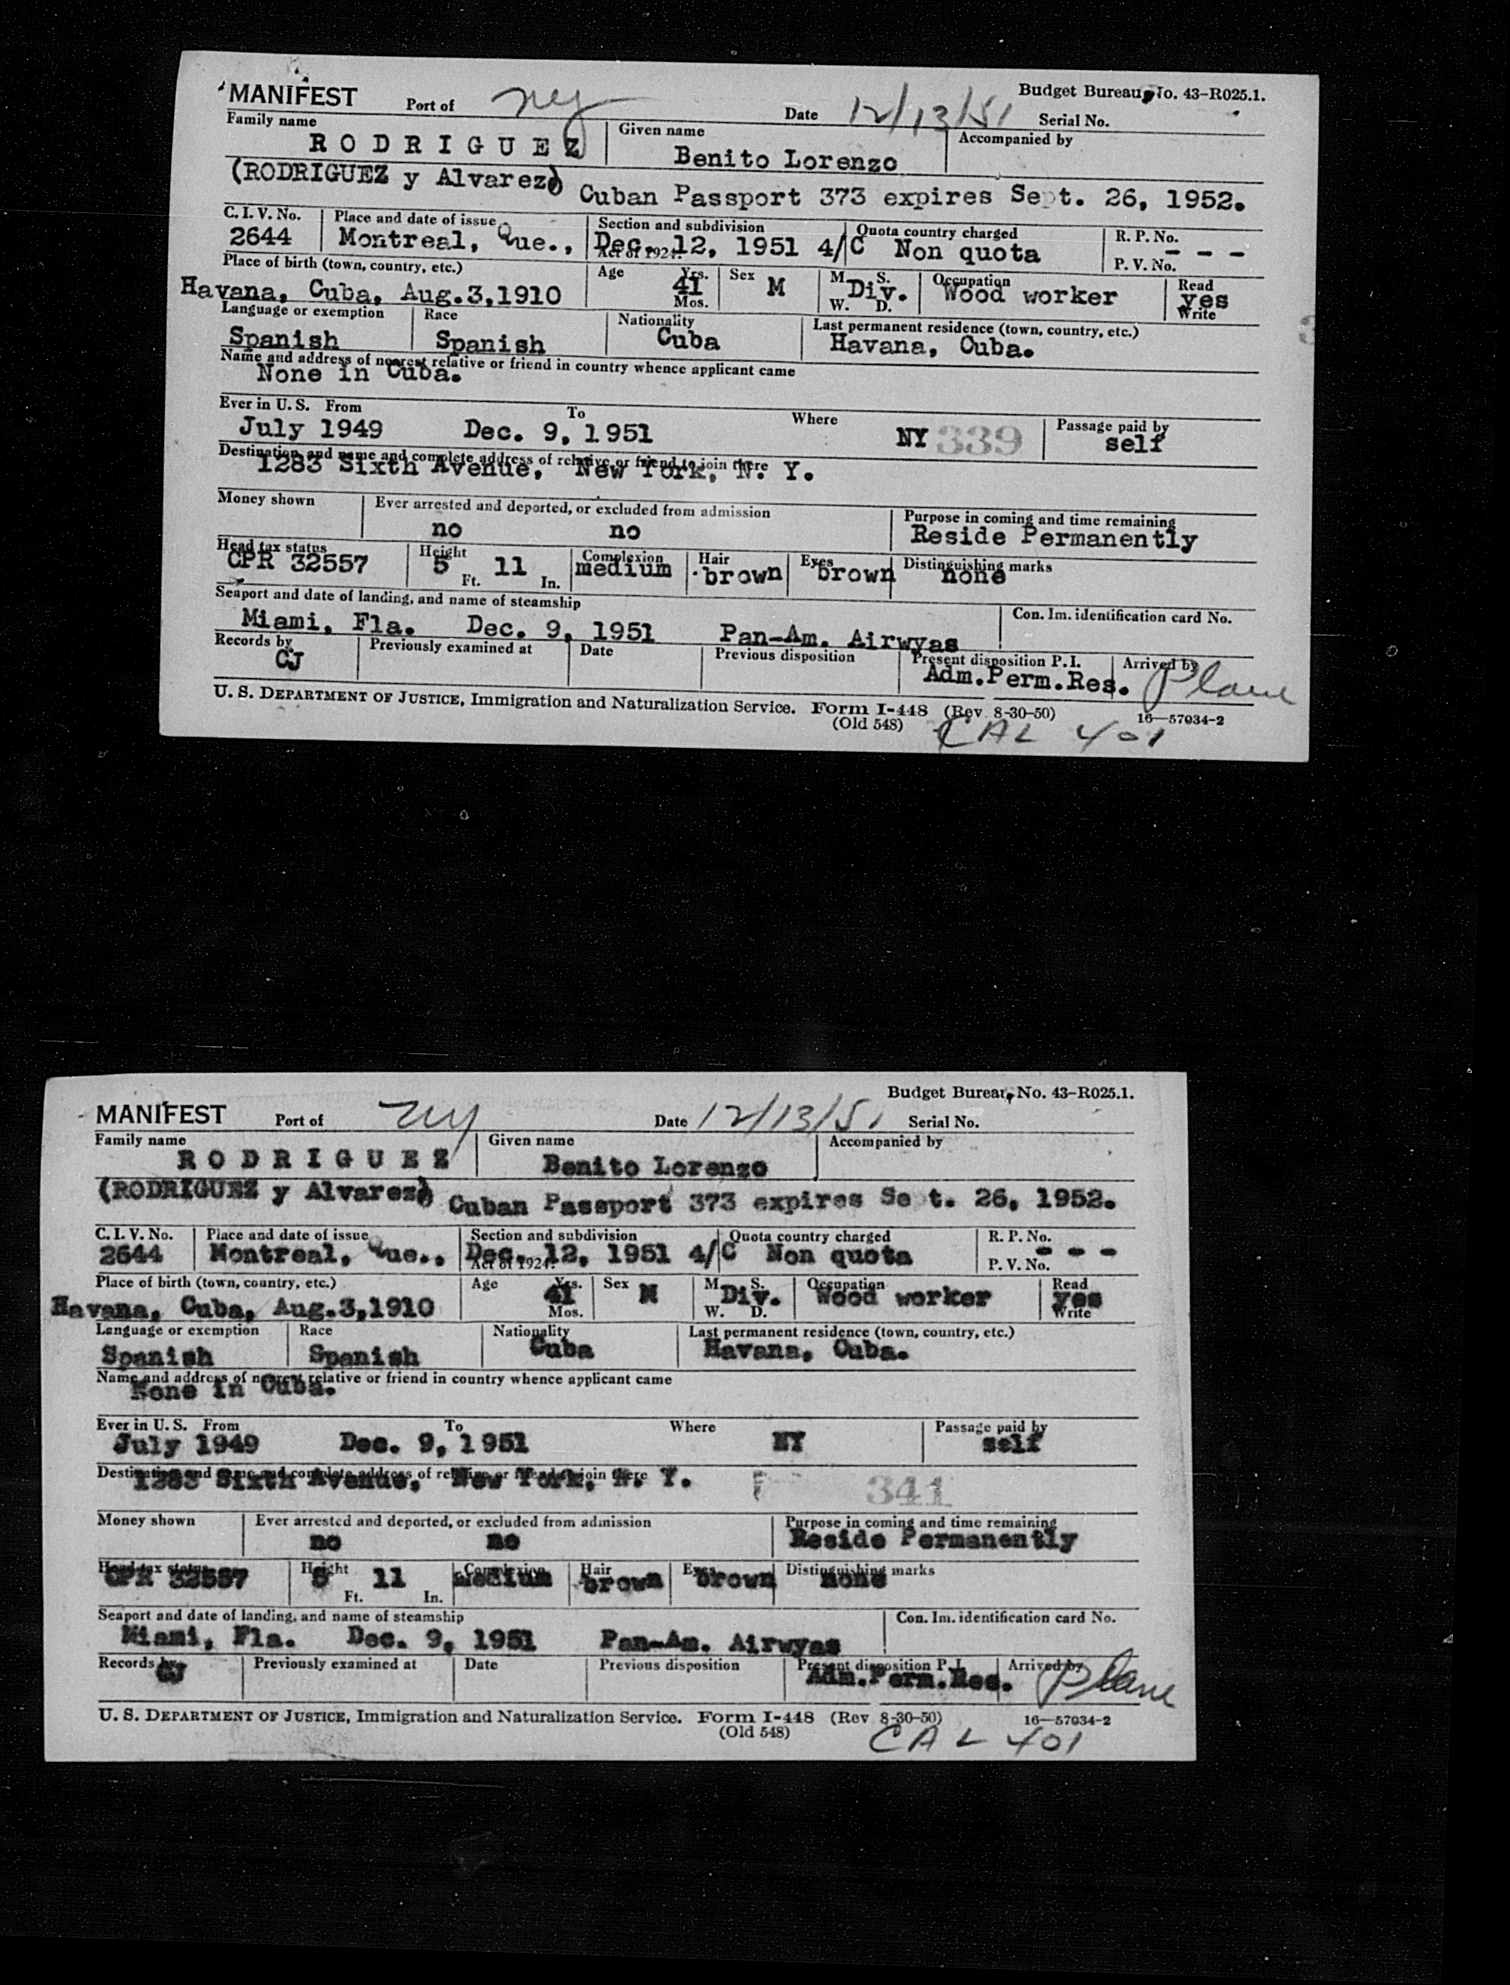 MANIFEST Port of NY Date 12/13/51 Budget Bureau No. 43-R025.1.
Serial No.
Family name Given name Accompanied by
RODRIGUEZ Benito Lorenzo
(RODRIGUEZ y Alvarez) Cuban Passport 373 expires Sept. 26, 1952.
C. I. V. No. Place and date of issue Section and subdivision Quota country charged R. P. No.
2644 Montreal, Que., Dec. 12, 1951 4/C Non quota - - -
Act of 1924. P. V. No.
Place of birth (town, country, etc.) Age Yrs. Sex M. S. Occupation Read
Havana, Cuba, Aug.3,1910 41 M Div. Wood worker yes
Mos. W. D. Write
Language or exemption Race Nationality Last permanent residence (town, country, etc.)
Spanish Spanish Cuba Havana, Cuba.
Name and address of nearest relative or friend in country whence applicant came
None in Cuba.
Ever in U. S. From To Where Passage paid by
July 1949 Dec. 9, 1951 NY 339 self
Destination, and name and complete address of relative or friend to join there
1283 Sixth Avenue, New York, N. Y.
Money shown Ever arrested and deported, or excluded from admission Purpose in coming and time remaining
no no Reside Permanently
Head tax status Height Complexion Hair Eyes Distinguishing marks
CPR 32557 5 Ft. 11 In. medium brown brown none
Seaport and date of landing, and name of steamship Con. Im. identification card No.
Miami, Fla. Dec. 9, 1951 Pan-Am. Airwyas
Records by Previously examined at Date Previous disposition Present disposition P. I. Arrived by
CJ Adm.Perm.Res. Plane
U. S. DEPARTMENT OF JUSTICE, Immigration and Naturalization Service. Form I-448 (Rev. 8-30-50) 16—57034-2
(Old 548) CAL 401
MANIFEST Port of NY Date 12/13/51 Budget Bureau No. 43-R025.1.
Serial No.
Family name Given name Accompanied by
RODRIGUEZ Benito Lorenzo
(RODRIGUEZ y Alvarez) Cuban Passport 373 expires Se t. 26, 1952.
C. I. V. No. Place and date of issue Section and subdivision Quota country charged R. P. No.
2644 Montreal, Que., Dec. 12, 1951 4/C Non quota - - -
Act of 1924. P. V. No.
Place of birth (town, country, etc.) Age Yrs. Sex M. S. Occupation Read
Havana, Cuba, Aug.3,1910 41 M Div. Wood worker yes
Mos. W. D. Write
Language or exemption Race Nationality Last permanent residence (town, country, etc.)
Spanish Spanish Cuba Havana, Cuba.
Name and address of nearest relative or friend in country whence applicant came
None in Cuba.
Ever in U. S. From To Where Passage paid by
July 1949 Dec. 9, 1951 NY self
Destination, and name and complete address of relative or friend to join there
1283 Sixth Avenue, New York, N. Y. 341
Money shown Ever arrested and deported, or excluded from admission Purpose in coming and time remaining
no no Reside Permanently
Head tax status Height Complexion Hair Eyes Distinguishing marks
CPR 32557 5 Ft. 11 In. medium brown brown none
Seaport and date of landing, and name of steamship Con. Im. identification card No.
Miami, Fla. Dec. 9, 1951 Pan-Am. Airwyas
Records by Previously examined at Date Previous disposition Present disposition P. I. Arrived by
CJ Adm.Perm.Res. Plane
U. S. DEPARTMENT OF JUSTICE, Immigration and Naturalization Service. Form I-448 (Rev. 8-30-50) 16—57034-2
(Old 548) CAL 401